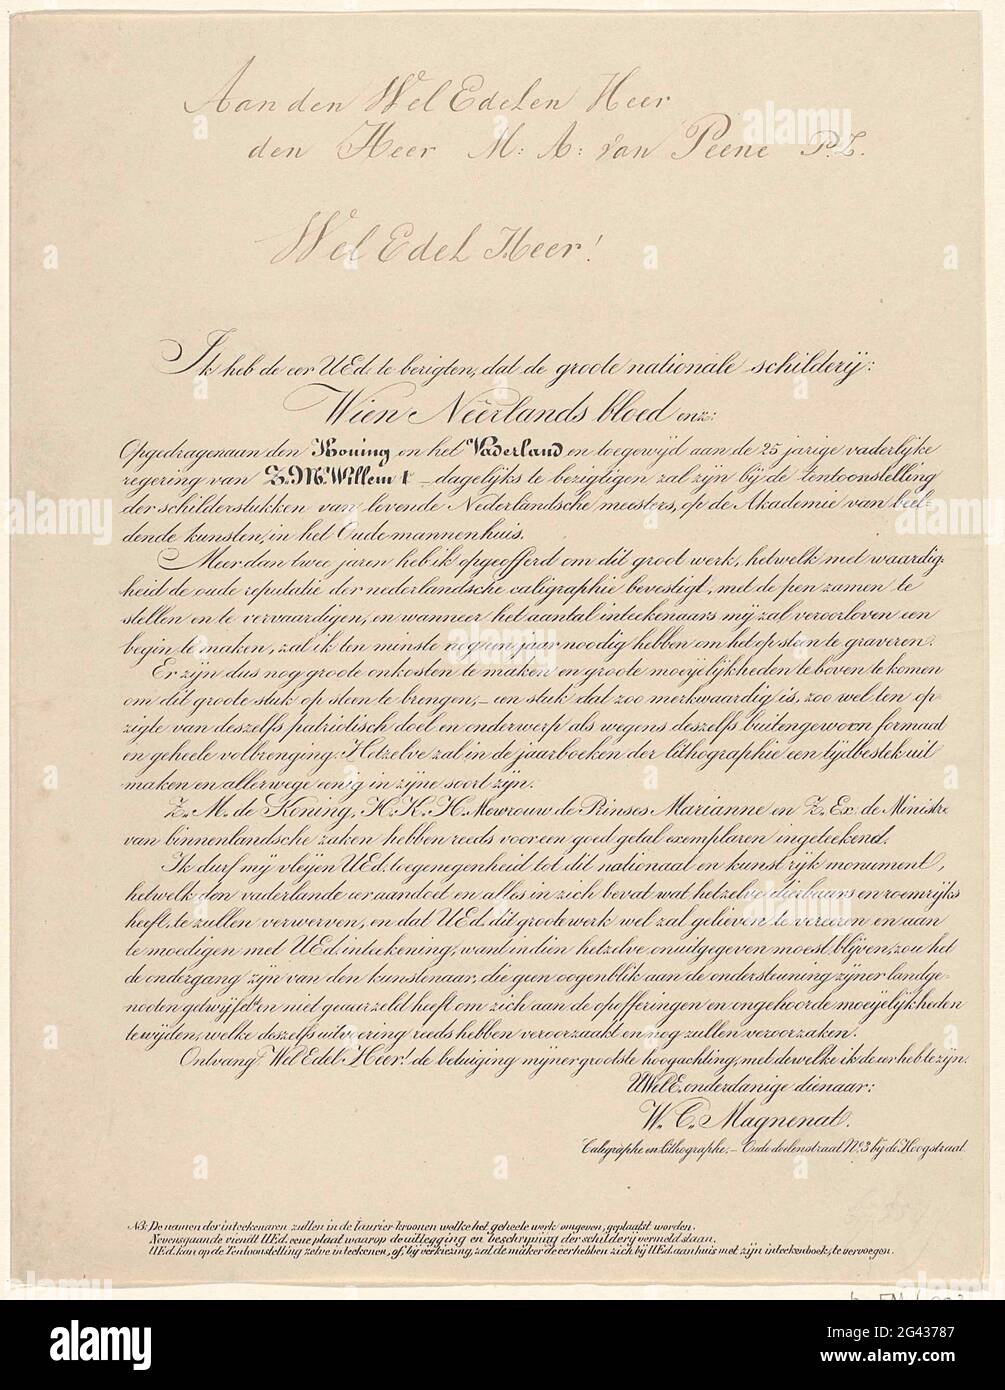 Aan den Wel Edelen Heer
den Heer M: A: van Peene P.Z.
Wel Edel Heer!
Ik heb de eer UEd: te berigten, dat de groote nationale schilderij:
Wien Neêrlands bloed enz:
Opgedragen aan den Koning en het Vaderland en toegewijd aan de 25 jarige vaderlijke
regering van Z.M. Willem I — dagelijks te bezigtigen zal zijn bij de tentoonstelling
der schilderstukken van levende Nederlandsche meesters, op de Akademie van beel-
dende kunsten, in het Oude mannenhuis.
Meer dan twee jaren heb ik opgeofferd om dit groot werk, hetwelk met waardig-
heid de oude reputatie der nederlandsche caligraphie bevestigt, met de pen zamen te
stellen en te vervaardigen, en wanneer het aantal inteekenaars mij zal veroorloven een
begin te maken, zal ik ten minste nog een jaar noodig hebben om het op steen te graveren.
Er zijn dus nog groote onkosten te maken en groote moeijelijkheden te boven te komen
om dit groote stuk op steen te brengen, — een stuk dat zoo merkwaardig is, zoo wel ten op-
zigte van deszelfs patriotisch doel en onderwerp als wegens deszelfs buitengewoon formaat
en geheele volbrenging. Hetzelve zal in de jaarboeken der lithographie een tijdbestek uit
maken en allerwege eenig in zijne soort zijn.
Z. M. de Koning, H. K. H. Mevrouw de Prinses Marianne en Z. Ex. de Ministre
van binnenlandsche zaken hebben reeds voor een goed getal exemplaren ingeteekend.
Ik durf mij vleijen UEd. toegenegenheid tot dit nationaal en kunstrijk monument,
hetwelk den vaderlande eer aandoet en alles in zich bevat wat hetzelve dierbaars en roemrijks
heeft, te zullen verwerven, en dat UEd. dit groote werk wel zal gelieven te vereeren en aan
te moedigen met UEd. inteekening, want indien hetzelve onuitgegeven moest blijven, zou het
de ondergang zijn van den kunstenaar, die geen oogenblik aan de ondersteuning zijner landge-
nooten getwijfeld en niet geaarzeld heeft om zich aan de opofferingen en ongehoorde moeijelijkheden
te wijden, welke deszelfs uitvoering reeds hebben veroorzaakt en nog zullen veroorzaken.
Ontvang Wel Edel Heer! de betuiging mijner grootste hoogachting, met dewelke ik de eer heb te zijn.
UWelE. onderdanige dienaar:
W. C. Magnenat.
Caligraphe en Lithographe; — Oude doelenstraat No. 3 bij de Hoogstraat.
NB: De namen der inteekenaren zullen in de Laurier-kroonen welke het geheele werk omgeven, geplaatst worden.
Nevensgaande vindt UEd. eene plaat waarop de uitlegging en beschrijving der schilderij vermeld staan.
UEd. kan op de Tentoonstelling zelve inteekenen, of, bij verkiezing, zal de maker de eer hebben zich bij UEd. aan huis met zijn inteekenboek, te vervoegen.
alamy
Image ID: 2G43787
www.alamy.com